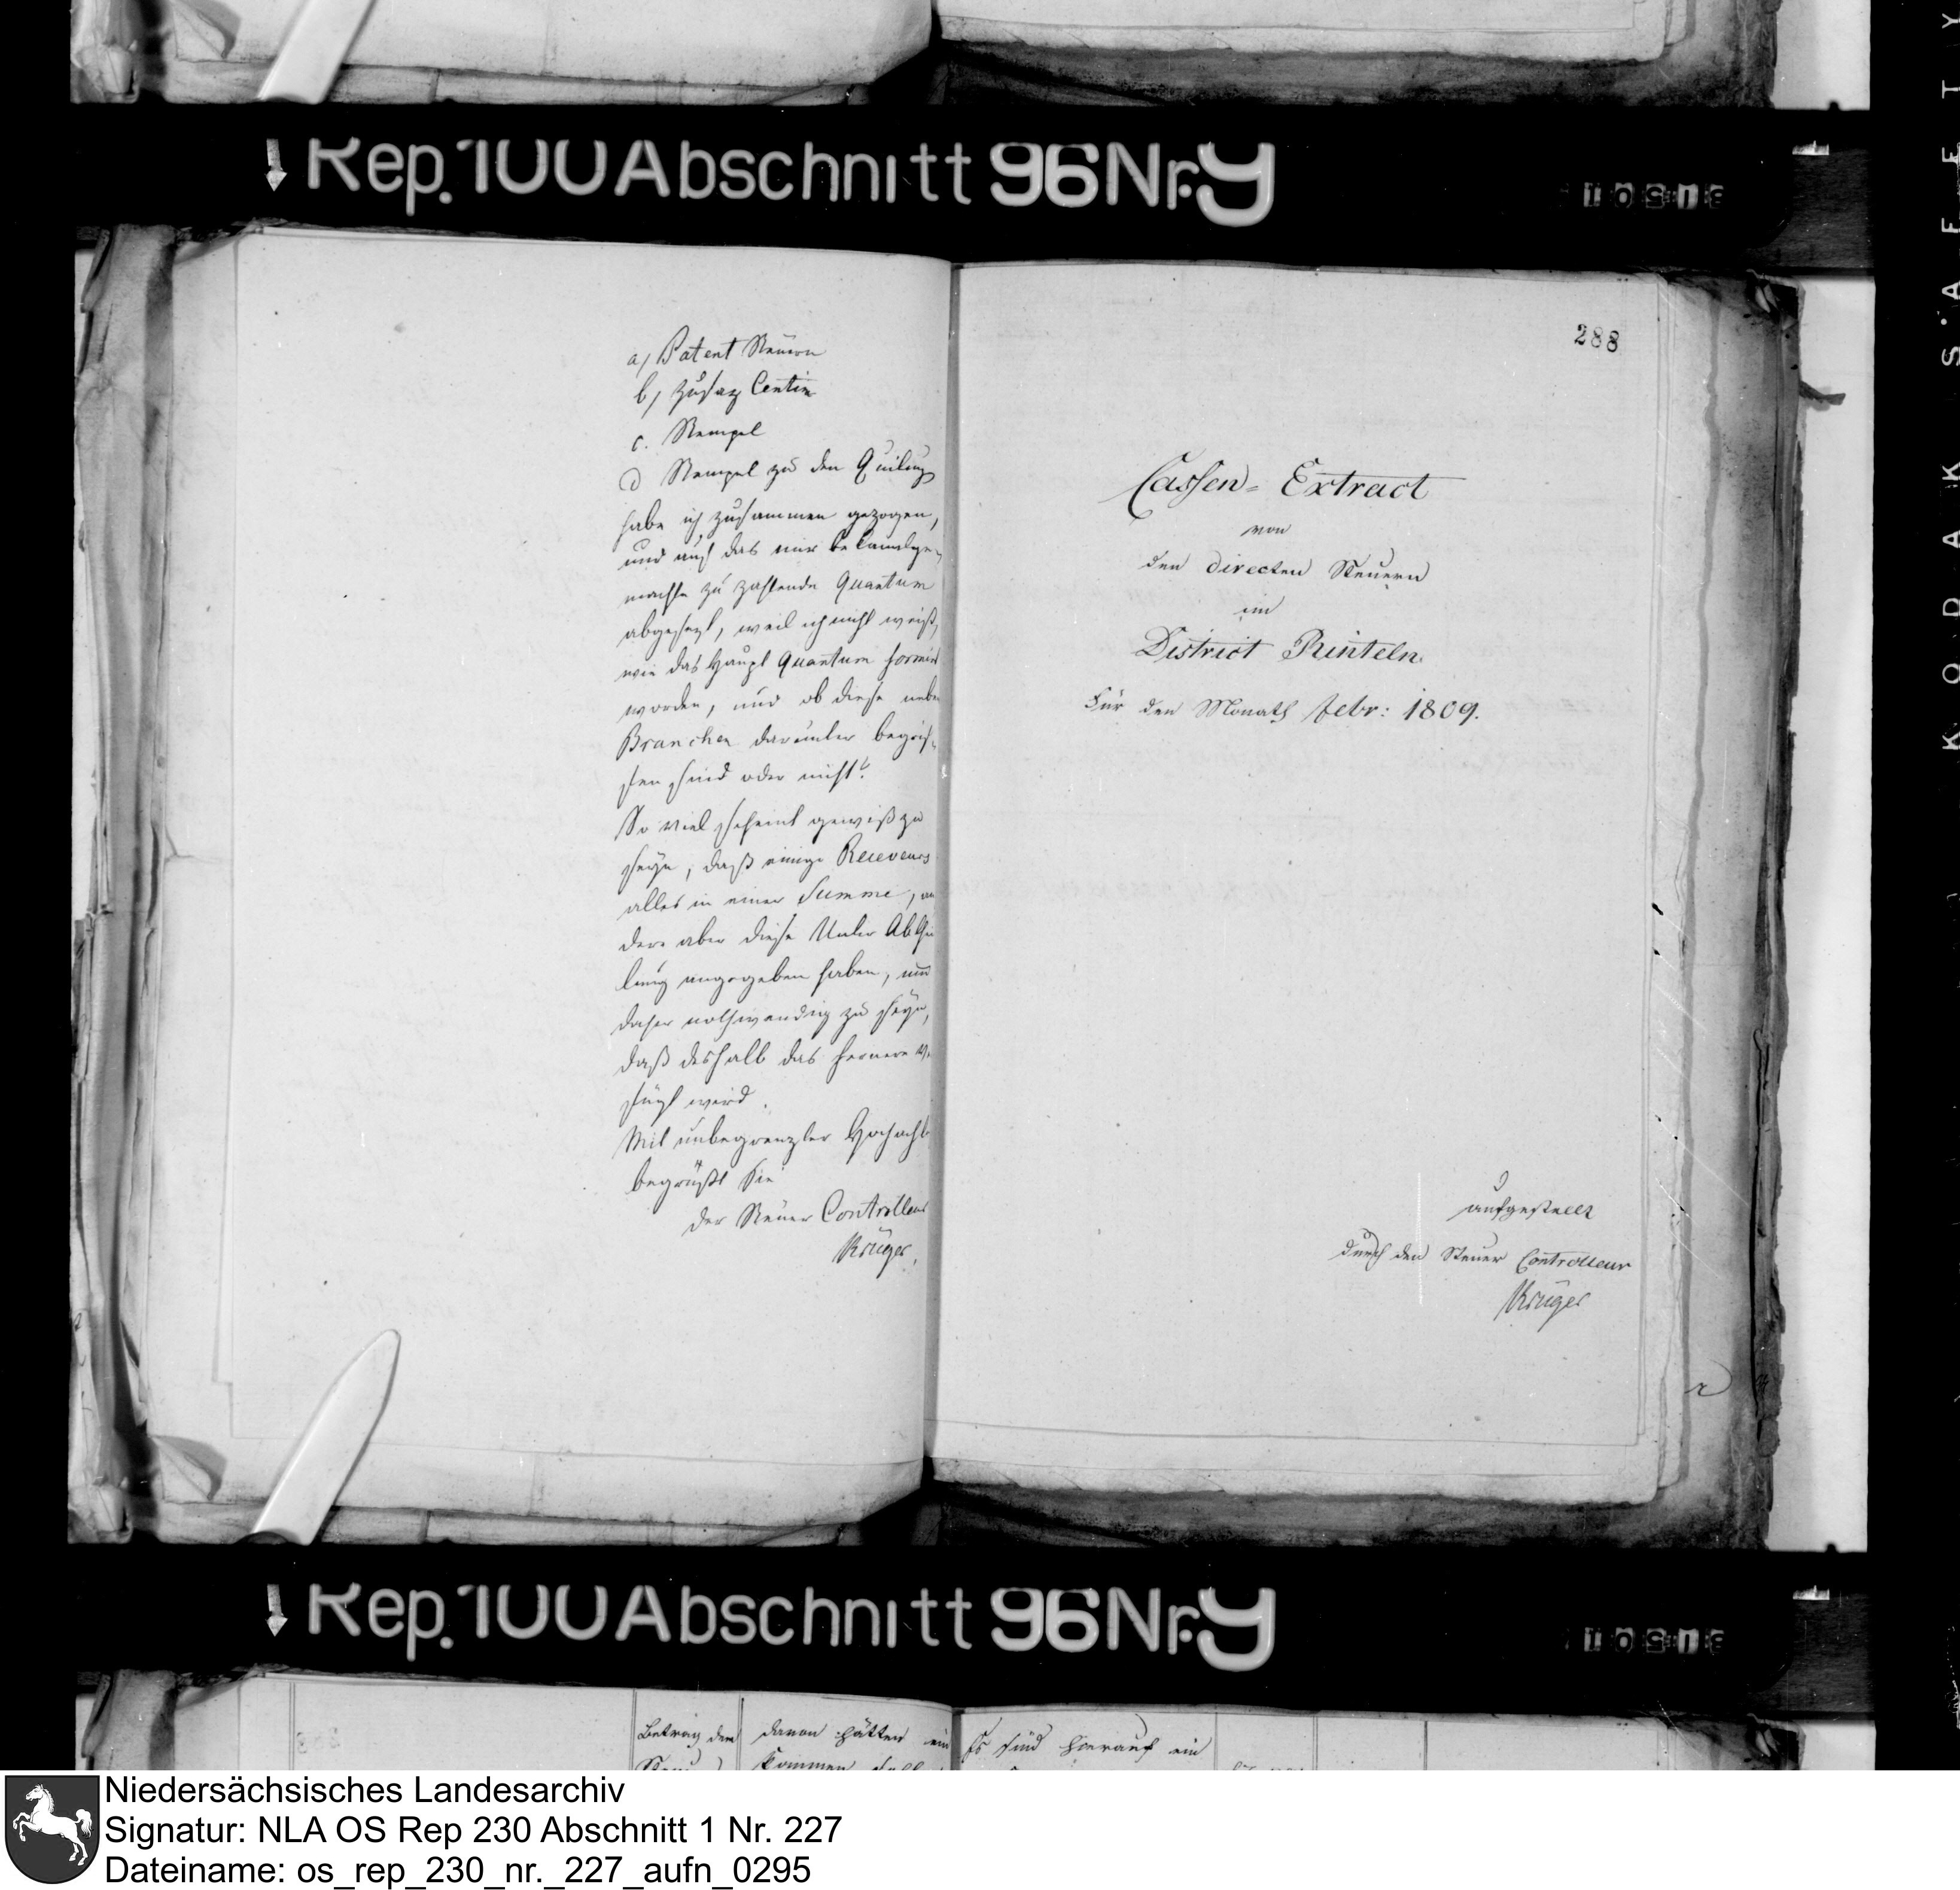 Rep. 100 Abschnitt 96 Nr. 9
a) Patent Steuern
b) Zusaz Centim
c. Stempel
d Stempel zu den
habe ich zusammen gezogen,
und auf das mir bekanntge-
machte zu zahlende Quantum
abgesezt, weil ich nicht weiß,
wie das Haupt Quantum formirt
worden, und ob diese neben
Branchen darunter begrif-
fen sind oder nicht?
So viel scheint gewiß zu
seyn, daß einige Receveurs
alles in einer Summe, an
dere aber diese Unter Abthei
lung angegeben haben, und
daher nothwendig zu seyn,
daß deshalb das fernere ver
fügt wird.
Mit unbegrenzter Hochacht
begrüßt Sie
der Steuer Controlleur
Krüger.
288
Cassen-Extract
von
den directen Steuern
im
District Rinteln
für den Monath Febr: 1809.
aufgestellt
durch den Steuer Controlleur
Krüger
Rep. 100 Abschnitt 96 Nr. 9
Betrag der
davon hätten ein
kommen
Es sind hierauf ein
KODAK SAFETY
Niedersächsisches Landesarchiv
Signatur: NLA OS Rep 230 Abschnitt 1 Nr. 227
Dateiname: os_rep_230_nr._227_aufn_0295